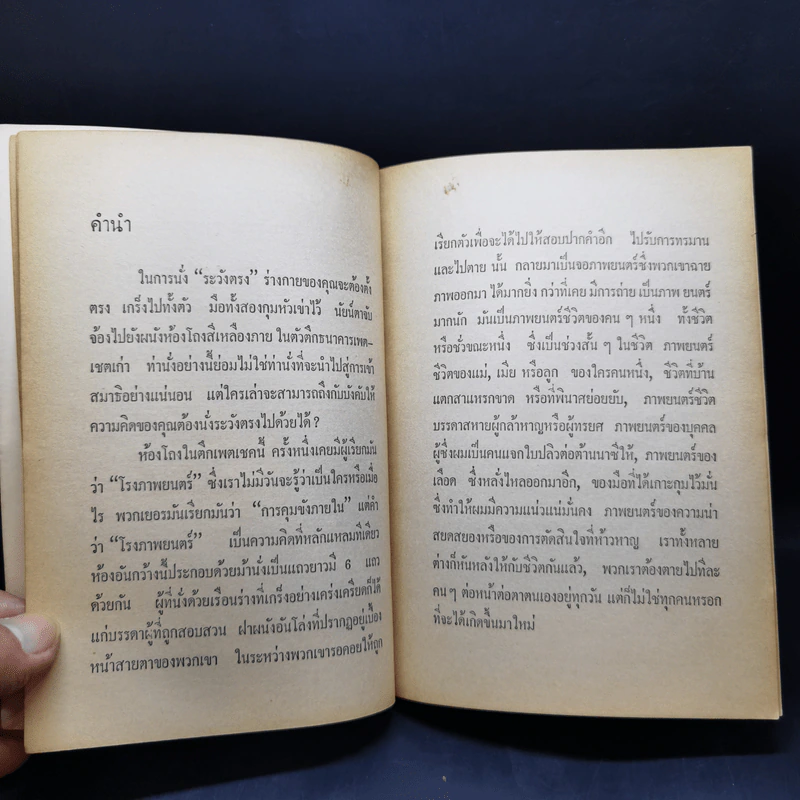 คำนำ
ในการนั่ง “ระวังตรง” ร่างกายของคุณจะต้องตั้ง
ตรง เกร็งไปทั้งตัว มือทั้งสองกุมหัวเข่าไว้ นัยน์ตาจับ
จ้องไปยังผนังห้องโถงสีเหลืองภาย ในตัวตึกธนาคารเพต-
เชตเก่า ท่านั่งอย่างนี้ย่อมไม่ใช่ท่านั่งที่จะนำไปสู่การเข้า
สมาธิอย่างแน่นอน แต่ใครเล่าจะสามารถถึงกับบังคับให้
ความคิดของคุณต้องนั่งระวังตรงไปด้วยได้ ?
ห้องโถงในตึกเพตเชคนี้ ครั้งหนึ่งเคยมีผู้เรียกมัน
ว่า “โรงภาพยนตร์” ซึ่งเราไม่มีวันจะรู้ว่าเป็นใครหรือเมื่อ
ไร พวกเยอรมันเรียกมันว่า “การคุมขังภายใน” แต่คำ
ว่า “โรงภาพยนตร์” เป็นความคิดที่หลักแหลมทีเดียว
ห้องอันกว้างนี้ประกอบด้วยม้านั่งเป็นแถวยาวมี 6 แถว
ด้วยกัน ผู้ที่นั่งด้วยเรือนร่างที่เกร็งอย่างเคร่งเครียดก็ได้
แก่บรรดาผู้ที่ถูกสอบสวน ฝาผนังอันโล่งที่ปรากฏอยู่เบื้อง
หน้าสายตาของพวกเขา ในระหว่างพวกเขารอคอยให้ถูก
เรียกตัวเพื่อจะได้ไปให้สอบปากคำอีก ไปรับการทรมาน
และไปตาย นั้น กลายมาเป็นจอภาพยนตร์ซึ่งพวกเขาฉาย
ภาพออกมา ได้มากยิ่ง กว่าที่เคย มีการถ่าย เป็นภาพ ยนตร์
มากนัก มันเป็นภาพยนตร์ชีวิตของคน ๆ หนึ่ง ทั้งชีวิต
หรือชั่วขณะหนึ่ง ซึ่งเป็นช่วงสั้น ๆ ในชีวิต ภาพยนตร์
ชีวิตของแม่, เมีย หรือลูก ของใครคนหนึ่ง, ชีวิตที่บ้าน
แตกสาแหรกขาด หรือที่พินาศย่อยยับ, ภาพยนตร์ชีวิต
บรรดาสหายผู้กล้าหาญหรือผู้ทรยศ ภาพยนตร์ของบุคคล
ผู้ซึ่งผมเป็นคนแจกใบปลิวต่อต้านนาซีให้, ภาพยนตร์ของ
เลือด ซึ่งหลั่งไหลออกมาอีก, ของมือที่ได้เกาะกุมไว้มั่น
ซึ่งทำให้ผมมีความแน่วแน่มั่นคง ภาพยนตร์ของความน่า
สยดสยองหรือของการตัดสินใจที่ห้าวหาญ เราทั้งหลาย
ต่างก็หันหลังให้กับชีวิตกันแล้ว, พวกเราต้องตายไปทีละ
คน ๆ ต่อหน้าต่อตาตนเองอยู่ทุกวัน แต่ก็ไม่ใช่ทุกคนหรอก
ที่จะได้เกิดขึ้นมาใหม่